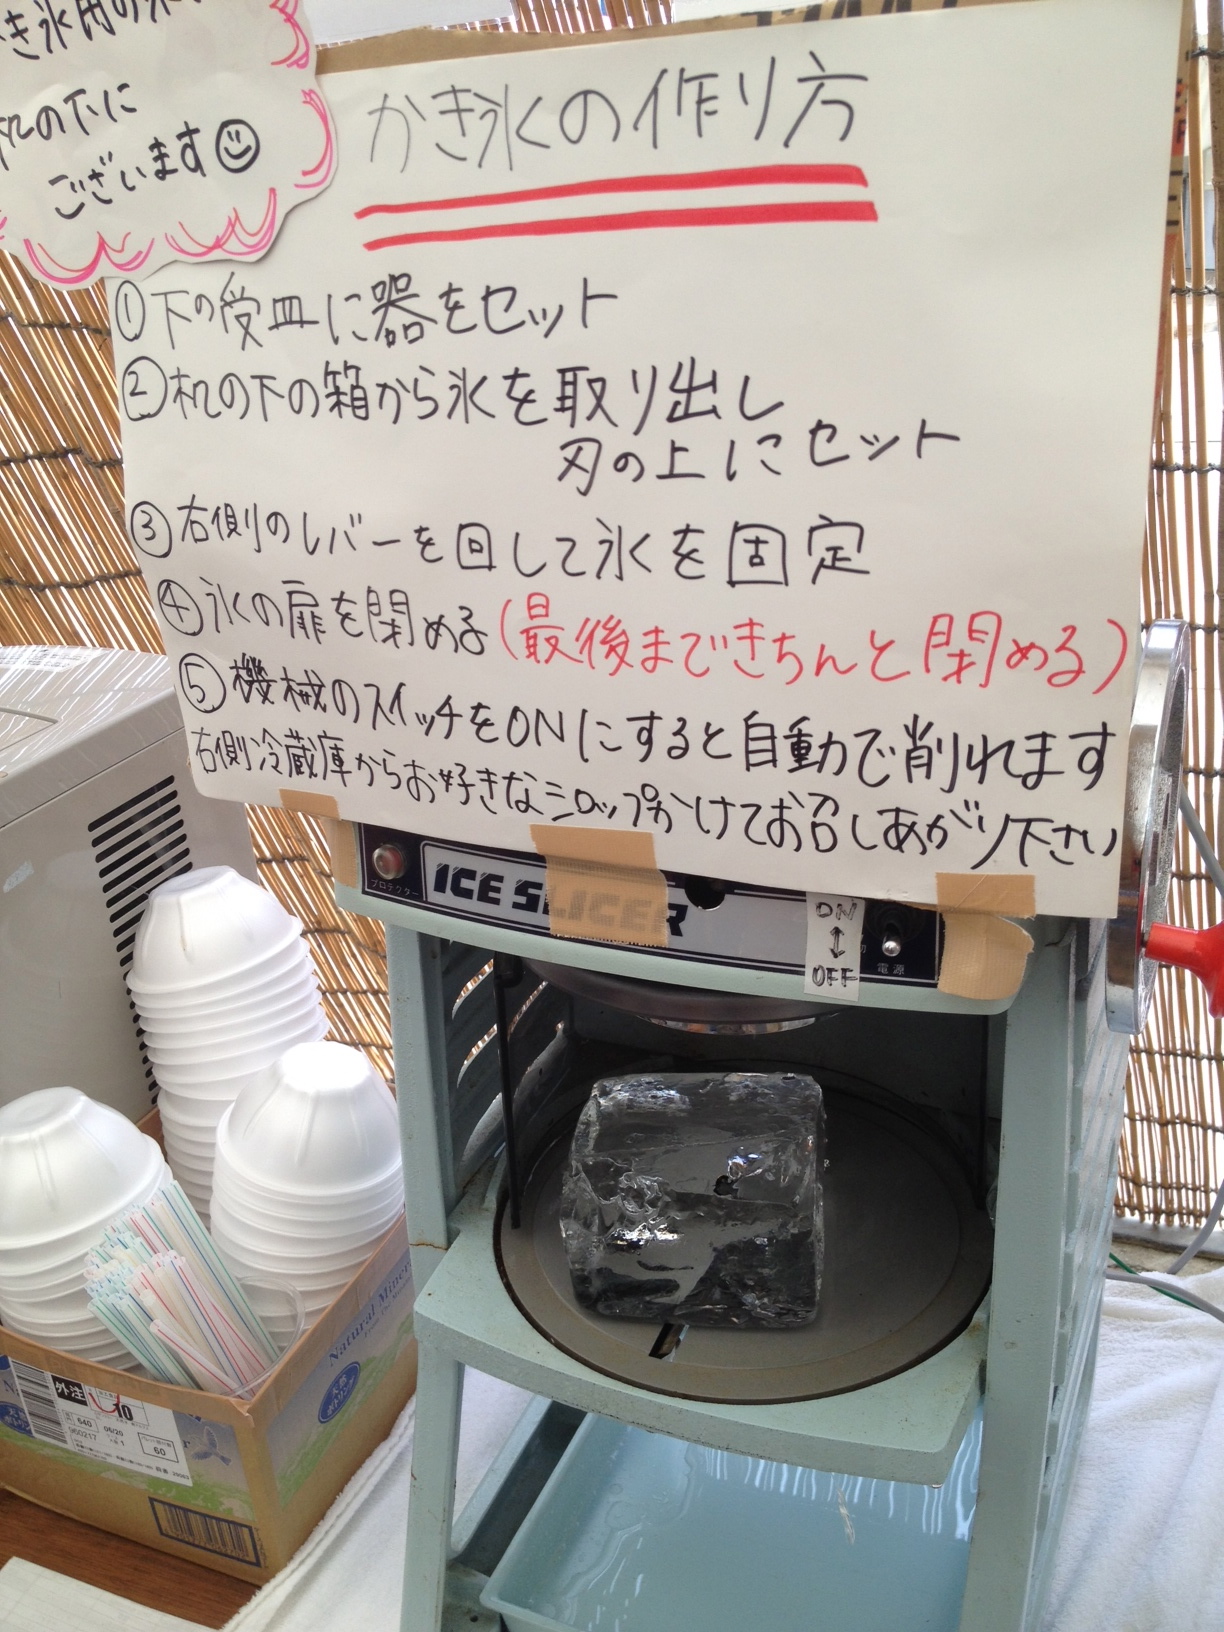 き氷用の氷
机の下に
ございます
かき氷の作り方
①下の受皿に器をセット
②机の下の箱から氷を取り出し
刃の上にセット
③右側のレバーを回して氷を固定
④氷の扉を閉める(最後まできちんと閉める)
⑤機械のスイッチをONにすると自動で削れます
右側冷蔵庫からお好きなシロップかけてお召しあがり下さい
プロテクター
ICE SLICER
ON
↕
OFF
切
電源
Natural Miner
天然
外注
10
640
06/20
960217
60